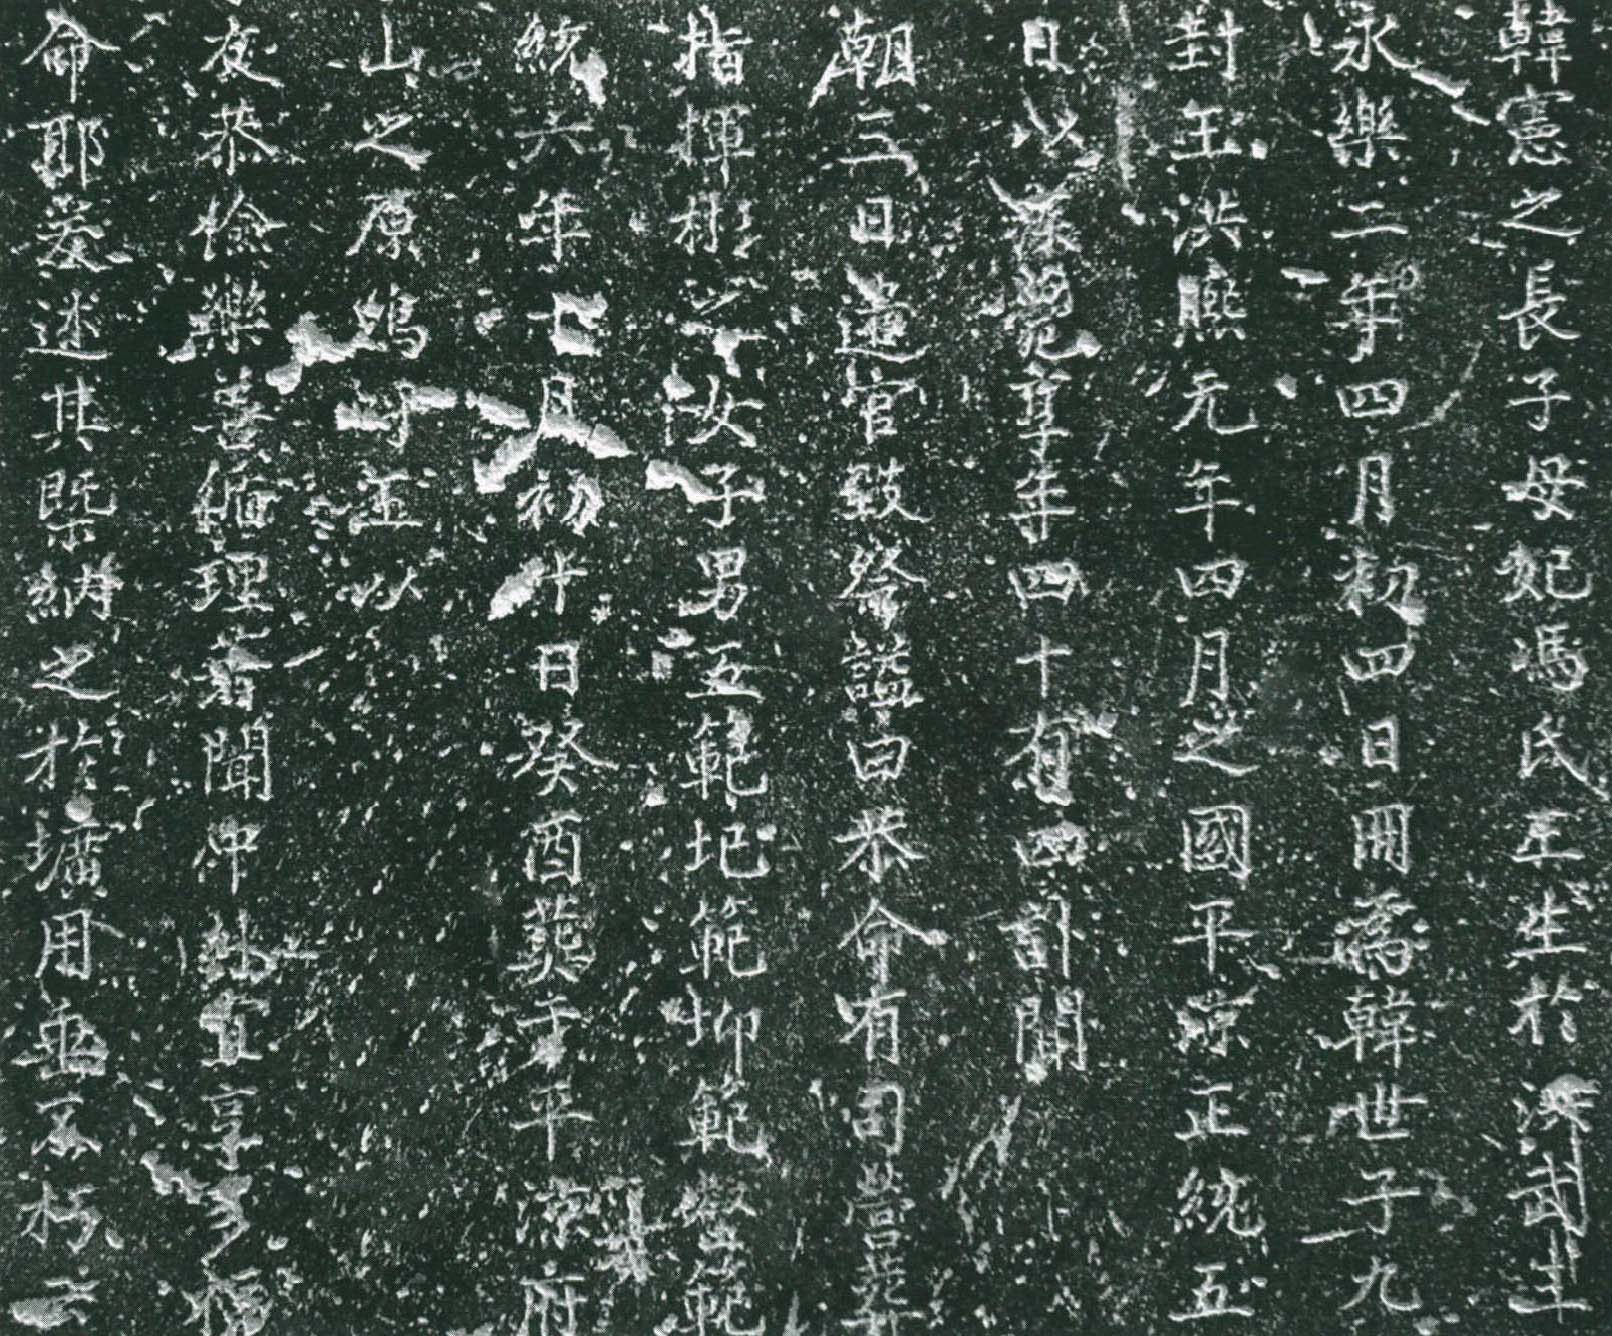 韓憲之長子母妃馮氏王生於洪武
永樂二年四月初四日冊為韓世子九
封王洪熙元年四月之國平涼正統五
日以疾薨享年四十有四訃聞
朝三日遣官致祭謚曰恭命有司營葬
指揮彬之女子男五範圯範𡊟範
統六年十月初十日癸酉葬于平涼府
山之原嗚呼王以
夜恭儉樂善循理著聞中外宜享多福
命耶爰述其槩納之於壙用垂不朽云